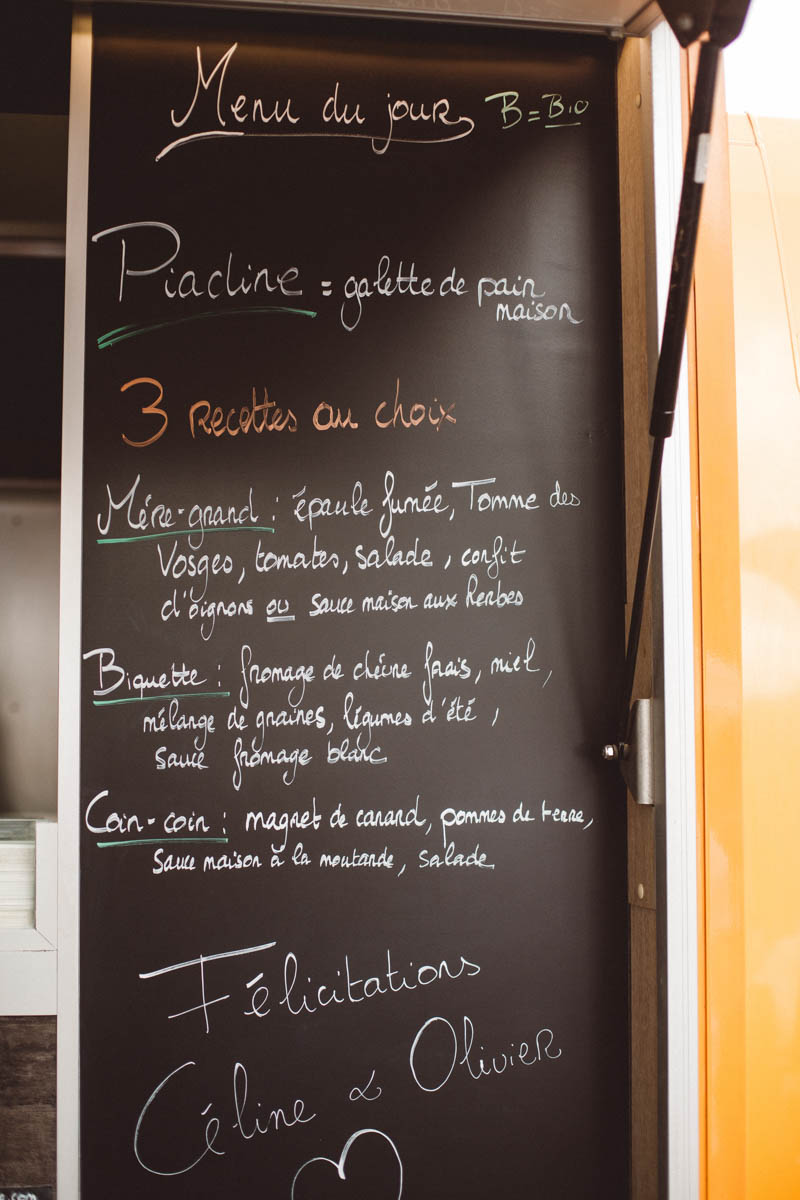 Menu du jour B = Bio
Piadine = galette de pain
maison
3 Recettes au choix
Mére-grand : épaule fumée, Tomme des
Vosges, tomates, salade, confit
d'oignons ou sauce maison aux herbes
Biquette : fromage de chèvre frais, miel,
mélange de graines, légumes d'été,
sauce fromage blanc
Coin-coin : magret de canard, pommes de terre,
sauce maison à la moutarde, salade
Félicitations
Céline & Olivier